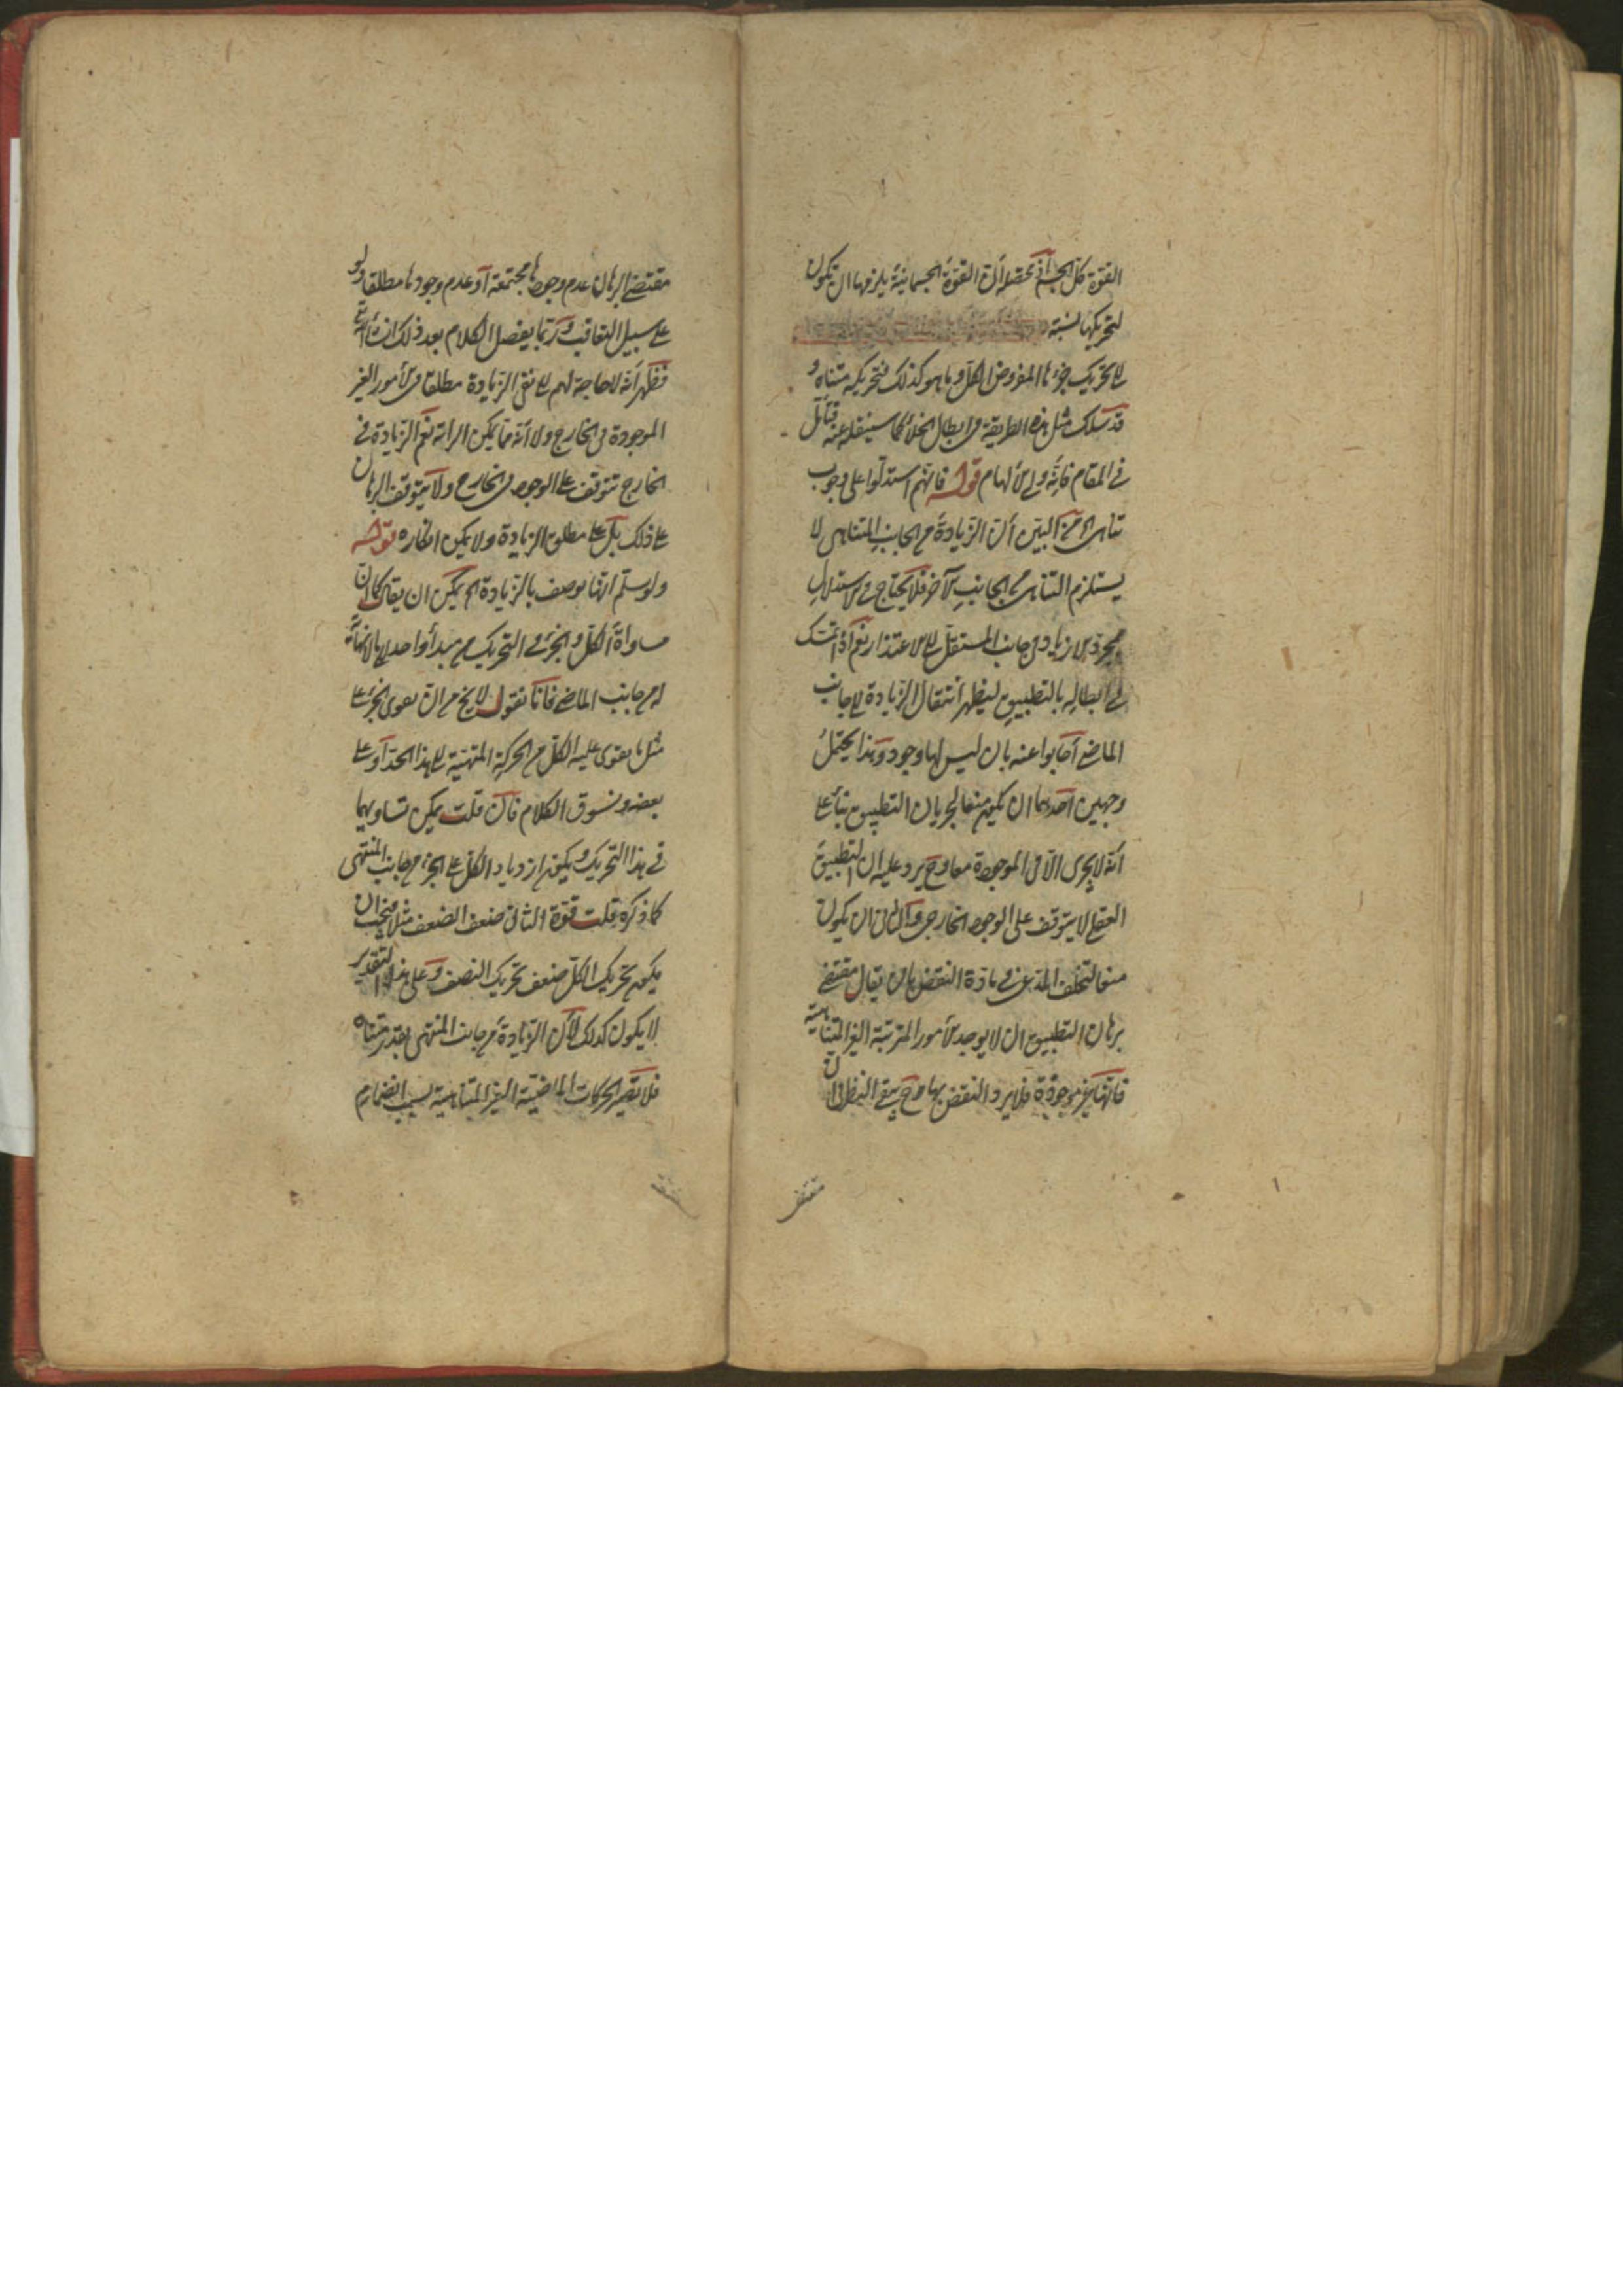 القوة كل الجسم اذ محصله أن القوة الجسمانية يلزمها ان يكون
لتحريكها نسبة
الى تحريك جزء ما المفروض الكل وما هو كذلك فتحريكه متناه و
قد سلك مثل هذه الطريقة فى ابطال الخلأ كما سينقله عنه فتأمل
فى المقام فانه ولى الالهام قوله فانهم استدلوا على وجوب
تناهى من البين أن الزيادة من الجانب المتناهى لا
يستلزم التناهى من الجانب الآخر فلا يحتاج فى الاستدلال
بمجرد الازدياد من جانب المستقبل الى الاعتذار نعم اذا تمسك
فى ابطاله بالتطبيق ليظهر انتقال الزيادة الى جانب
الماضى أجابوا عنه بان ليس لها وجود وهذا يحتمل
وجهين احدهما ان يكون منعا لجريان التطبيق بناء على
أنه لا يجرى الا فى الموجودة معا وح يرد عليه ان التطبيق
العقلى لا يتوقف على الوجود الخارجى والثانى ان يكون
منعا لتخلف المدعى فى مادة النقض بان يقال مقتضى
برهان التطبيق ان لا يوجد الامور المترتبة الغير المتناهية
فانها غير موجودة فلا يرد النقض بها وح يبقى النظر فى ان
مقتضى
مقتضى البرهان عدم وجودها مجتمعة أو عدم وجودها مطلقا ولو
على سبيل التعاقب وربما يفصل الكلام بعد ذلك ان شاء الله تع
فظهر أنه لا حاجة لهم الى نفى الزيادة مطلقا فى الامور الغير
الموجودة فى الخارج ولا أنه مما يمكن الراته نعم الزيادة فى
الخارج تتوقف على الوجود فى الخارج ولا يتوقف البرهان
على ذلك بل على مطلق الزيادة ولا يمكن انكاره قوله
ولو سلم انها يوصف بالزيادة الخ يمكن ان يقال كما ان
مساواة الكل والجزء فى التحريك من مبدأ واحد الى ما لا نهاية
له من جانب الماضى فانا نقول لا يخ من ان يقوى الجزء على
مثل ما يقوى عليه الكل من الحركة المنتهية الى هذا الحد أو على
بعضه ونسوق الكلام فان قلت يمكن تساويهما
فى هذا التحريك ويكون ازدياد الكل على الجزء من جانب المنتهى
كما ذكره قلت قوة الثانى ضعف الضعف مثلا فيجب ان
يكون تحريك الكل ضعف تحريك النصف وعلى هذا التقدير
لا يكون كذلك لأن الزيادة من جانب المنتهى بقدر متناه
فلا تصير الحركات الماضية الغير المتناهية بسبب انضمام